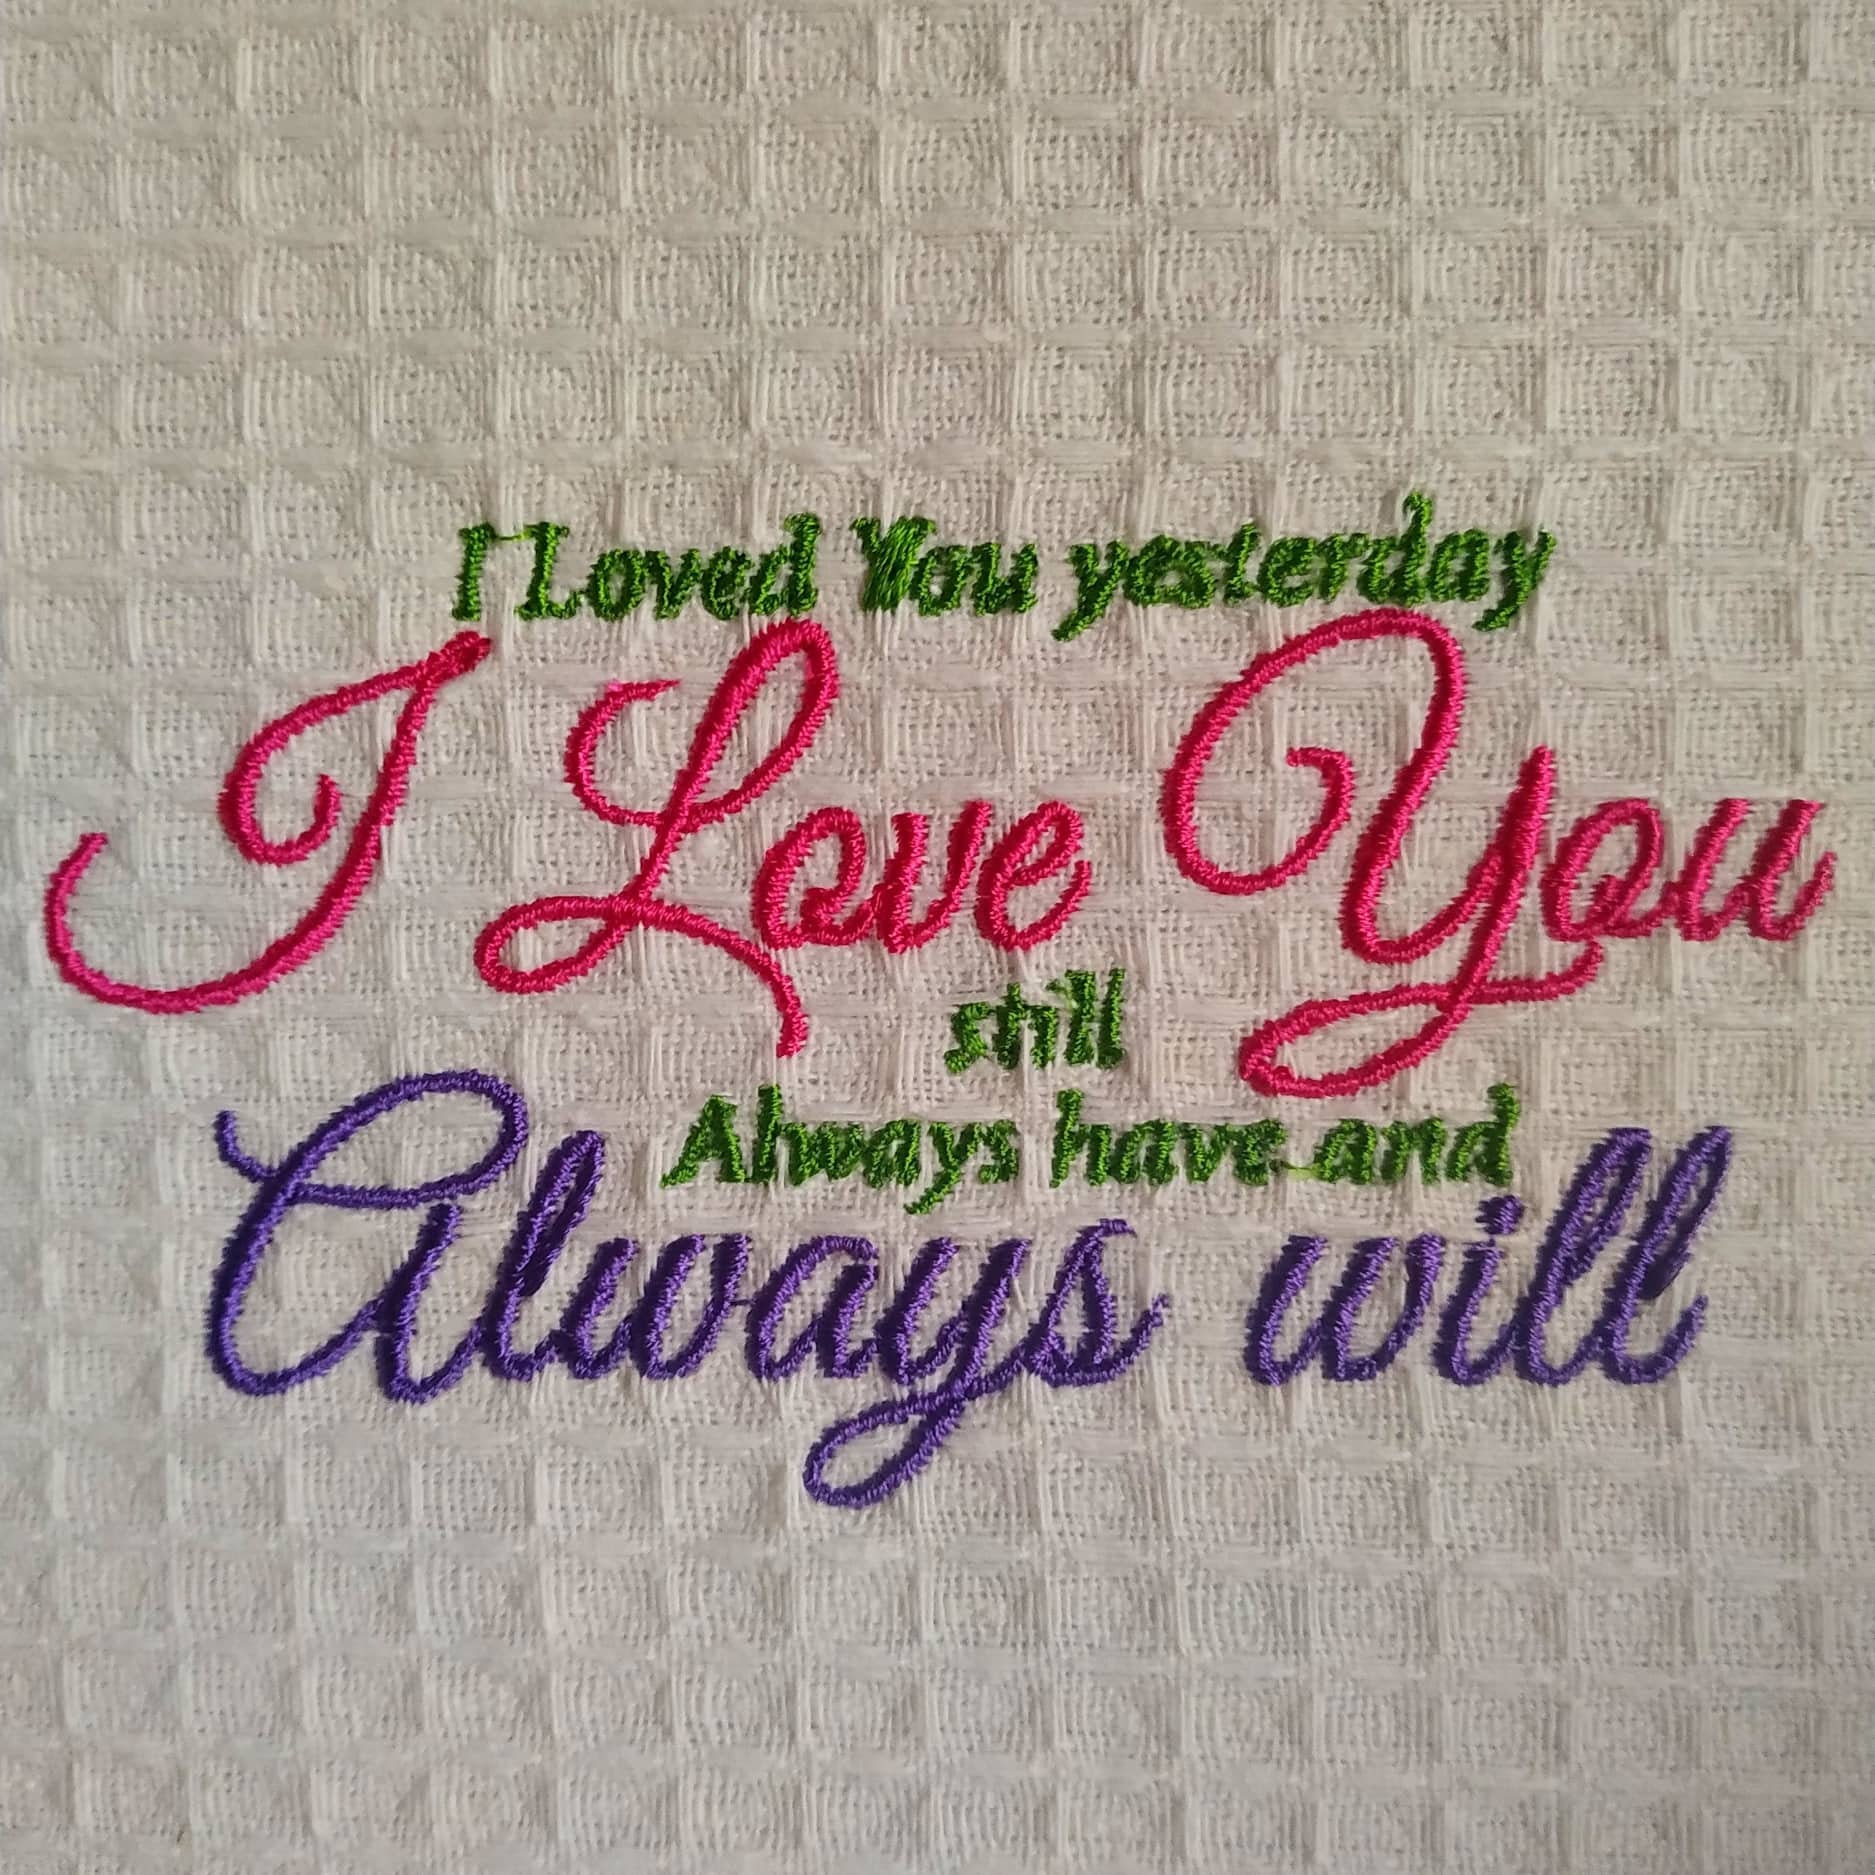 I Loved You yesterday
I Love You
still
Always have and
Always will